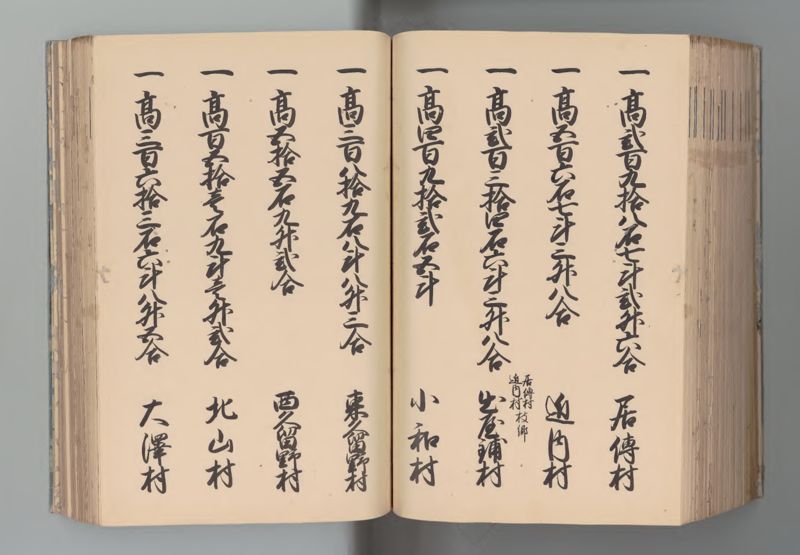 一 高貳百九拾八石七斗貳升六合 居傳村
一 高五百六石七斗二升八合 近内村
一 高貳百三拾四石六斗三升八合 出屋鋪村
居傳村
近内村 枝郷
一 高四百九拾貳石五斗 小和村
一 高三百八拾九石八斗八升三合 東久留野村
一 高五拾五石九升貳合 西久留野村
一 高百五拾壱石九斗壱升貳合 北山村
一 高三百六拾三石六斗八升五合 大澤村